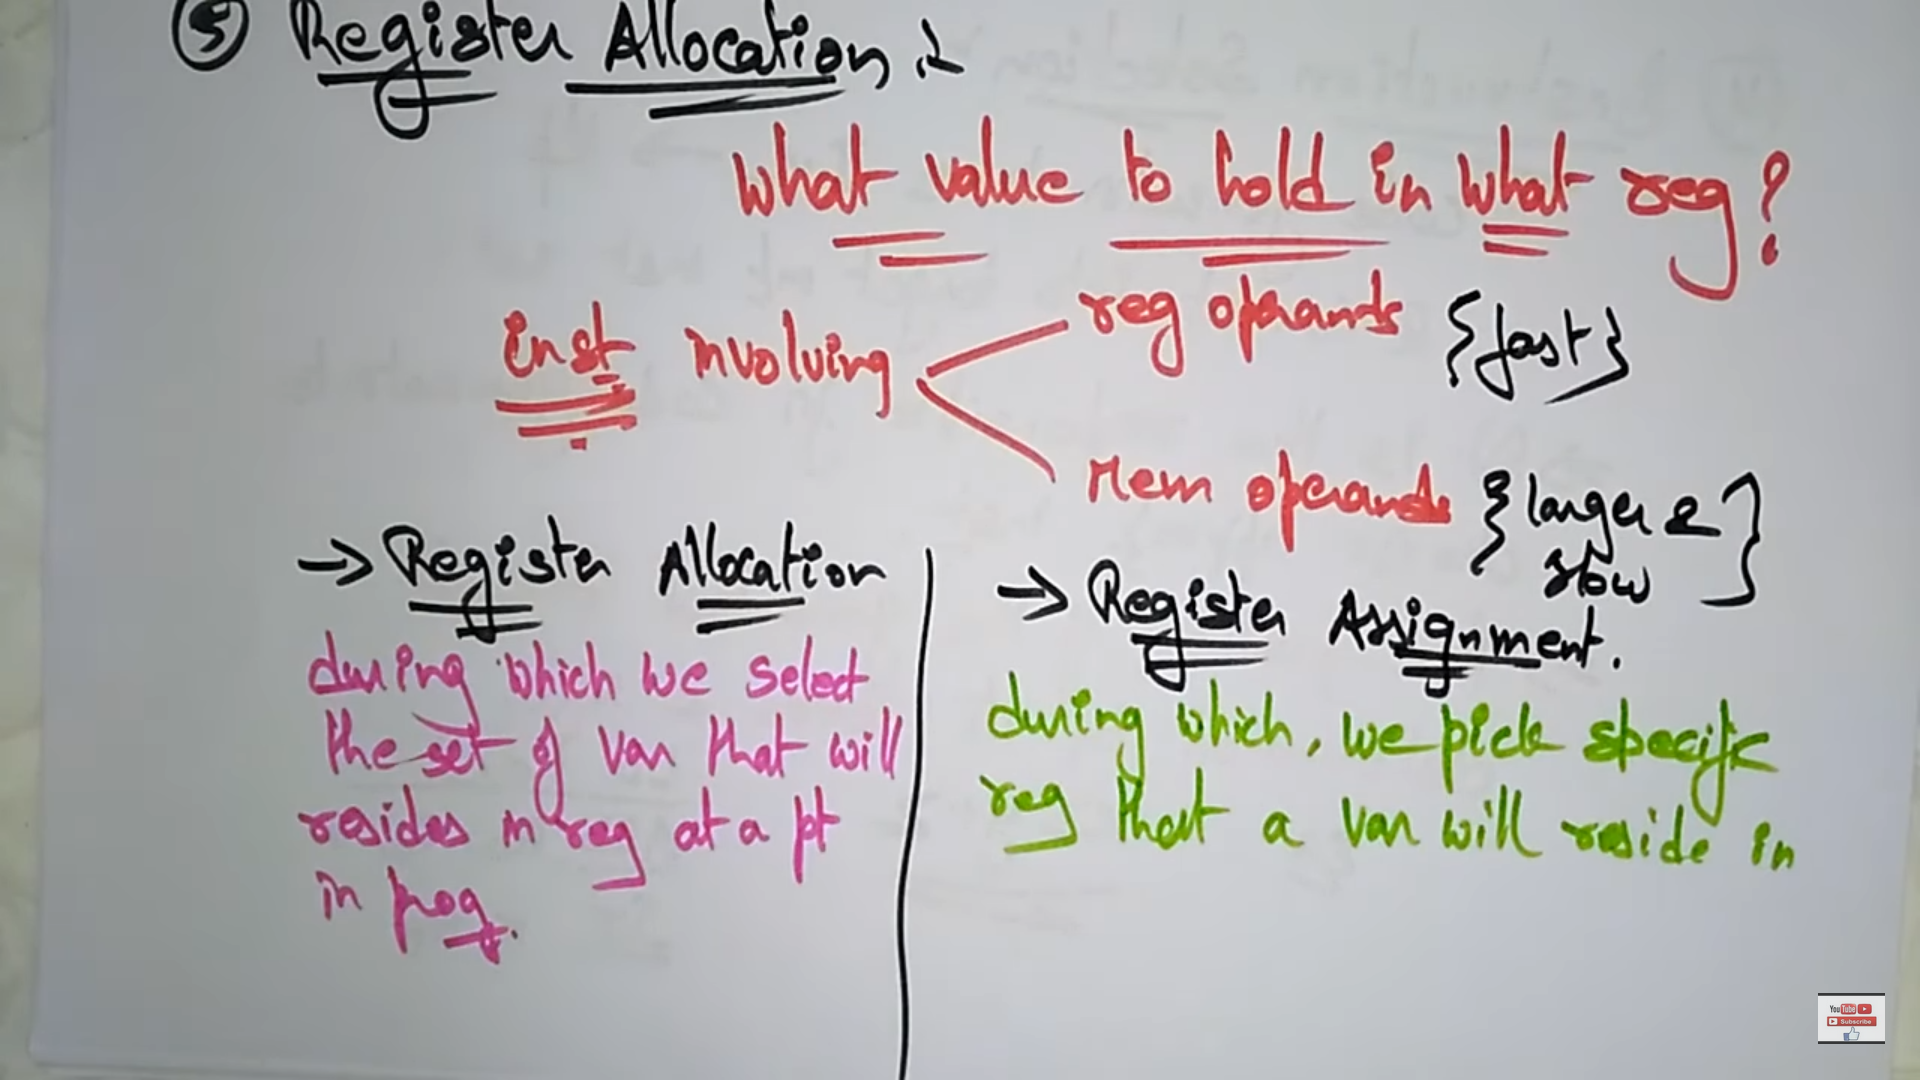 ⑤ Register Allocation :-
What value to hold in what reg?
inst involving
reg operands {fast}
Mem operands {larger &
slow}
→ Register Allocation
during which we select
the set of var that will
resides in reg at a pt
in prog.
→ Register Assignment.
during which, we pick specific
reg that a var will reside in
YouTube
Subscribe